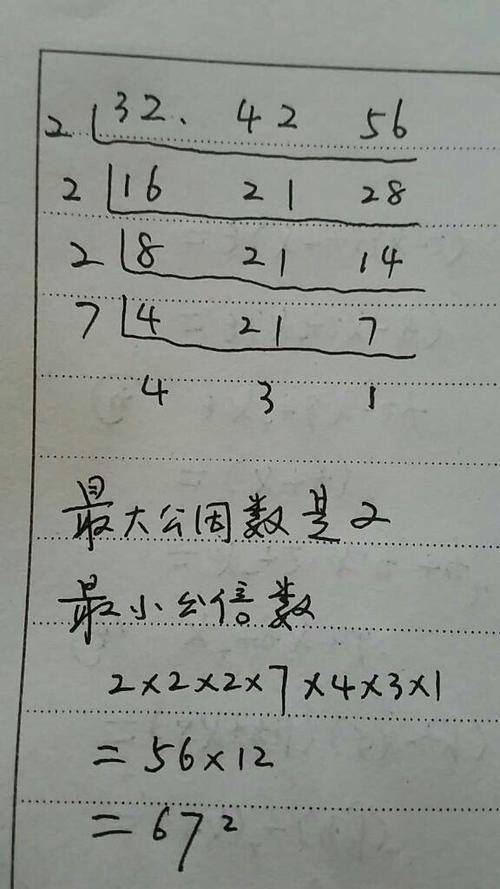 2 32、 42 56
2 16 21 28
2 8 21 14
7 4 21 7
4 3 1
最大公因数是2
最小公倍数
2×2×2×7×4×3×1
=56×12
=672